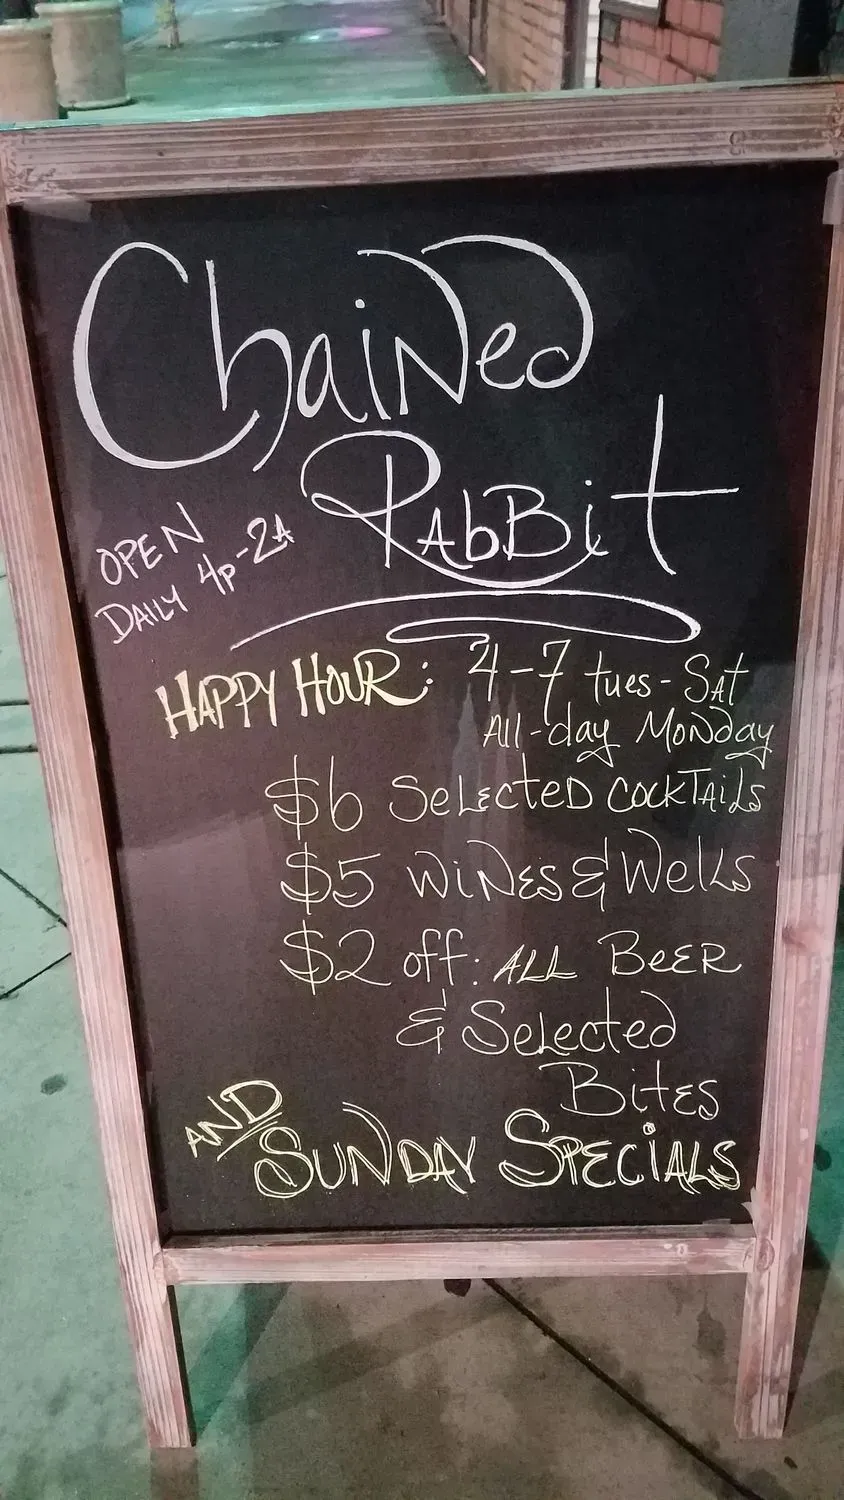 Chained
Rabbit
OPEN
DAILY 4P-2A
HAPPY HOUR: 4-7 tues-SAT
All-day Monday
$6 Selected cockTails
$5 wines & Wells
$2 off: ALL BeeR
& Selected
Bites
AND
SUNDAY SPECiALS